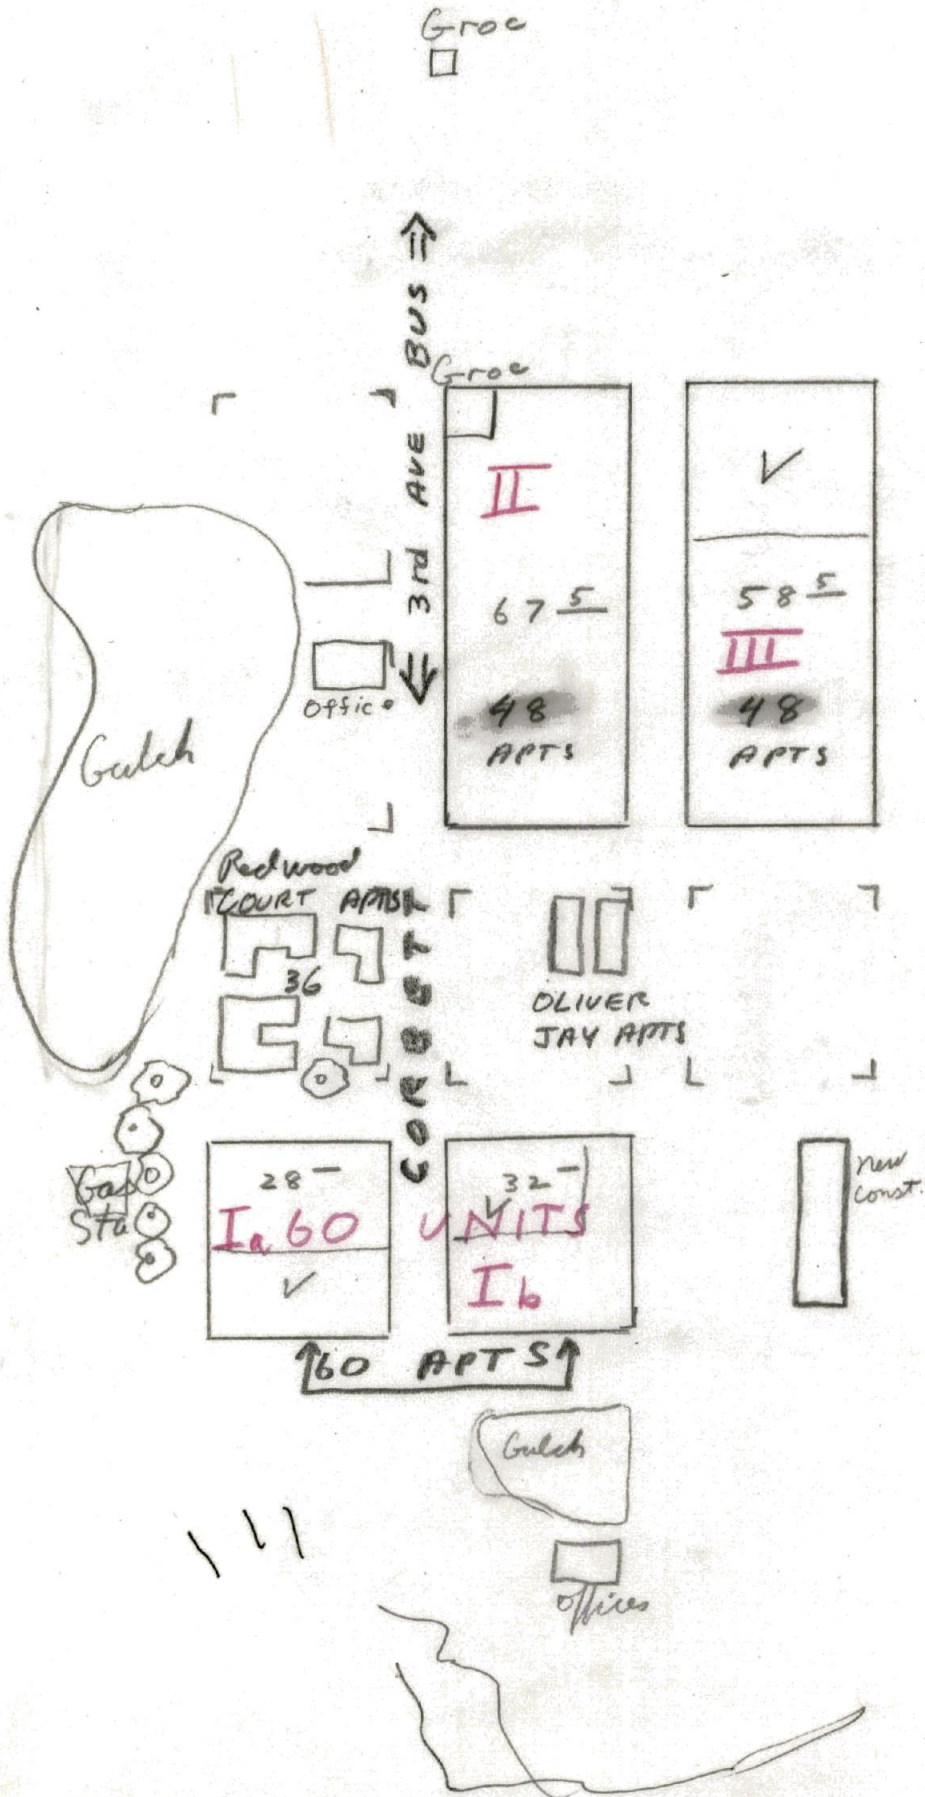 Groc
BUS
3rd AVE
Groc
II
67 5
48
APTS
✓
58 5
III
48
APTS
Office
Gulch
Redwood
COURT APTS
36
CORBETT
OLIVER
JAY APTS
Gas
Sta
28 –
Ia 60 UNITS
✓
32 –
✓
Ib
new
const.
60 APTS
Gulch
Offices